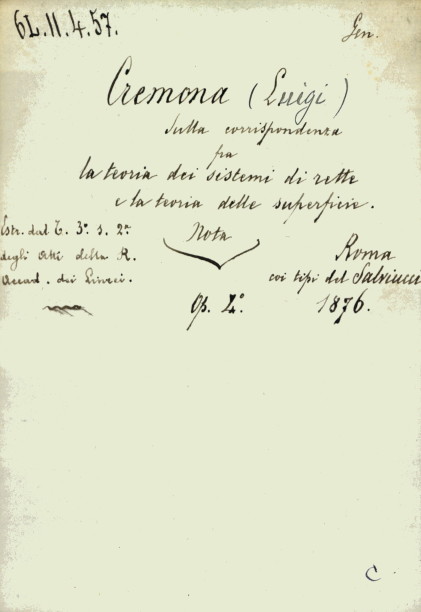 6L.11.4.57.
Gen.
Cremona (Luigi)
Sulla corrispondenza
fra
la teoria dei sistemi di rette
e la teoria delle superficie.
Nota
Estr. dal T. 3º s. 2ª
degli Atti della R.
Accad. dei Lincei.
Roma
coi tipi del Salviucci
1876.
Op. 4º
C